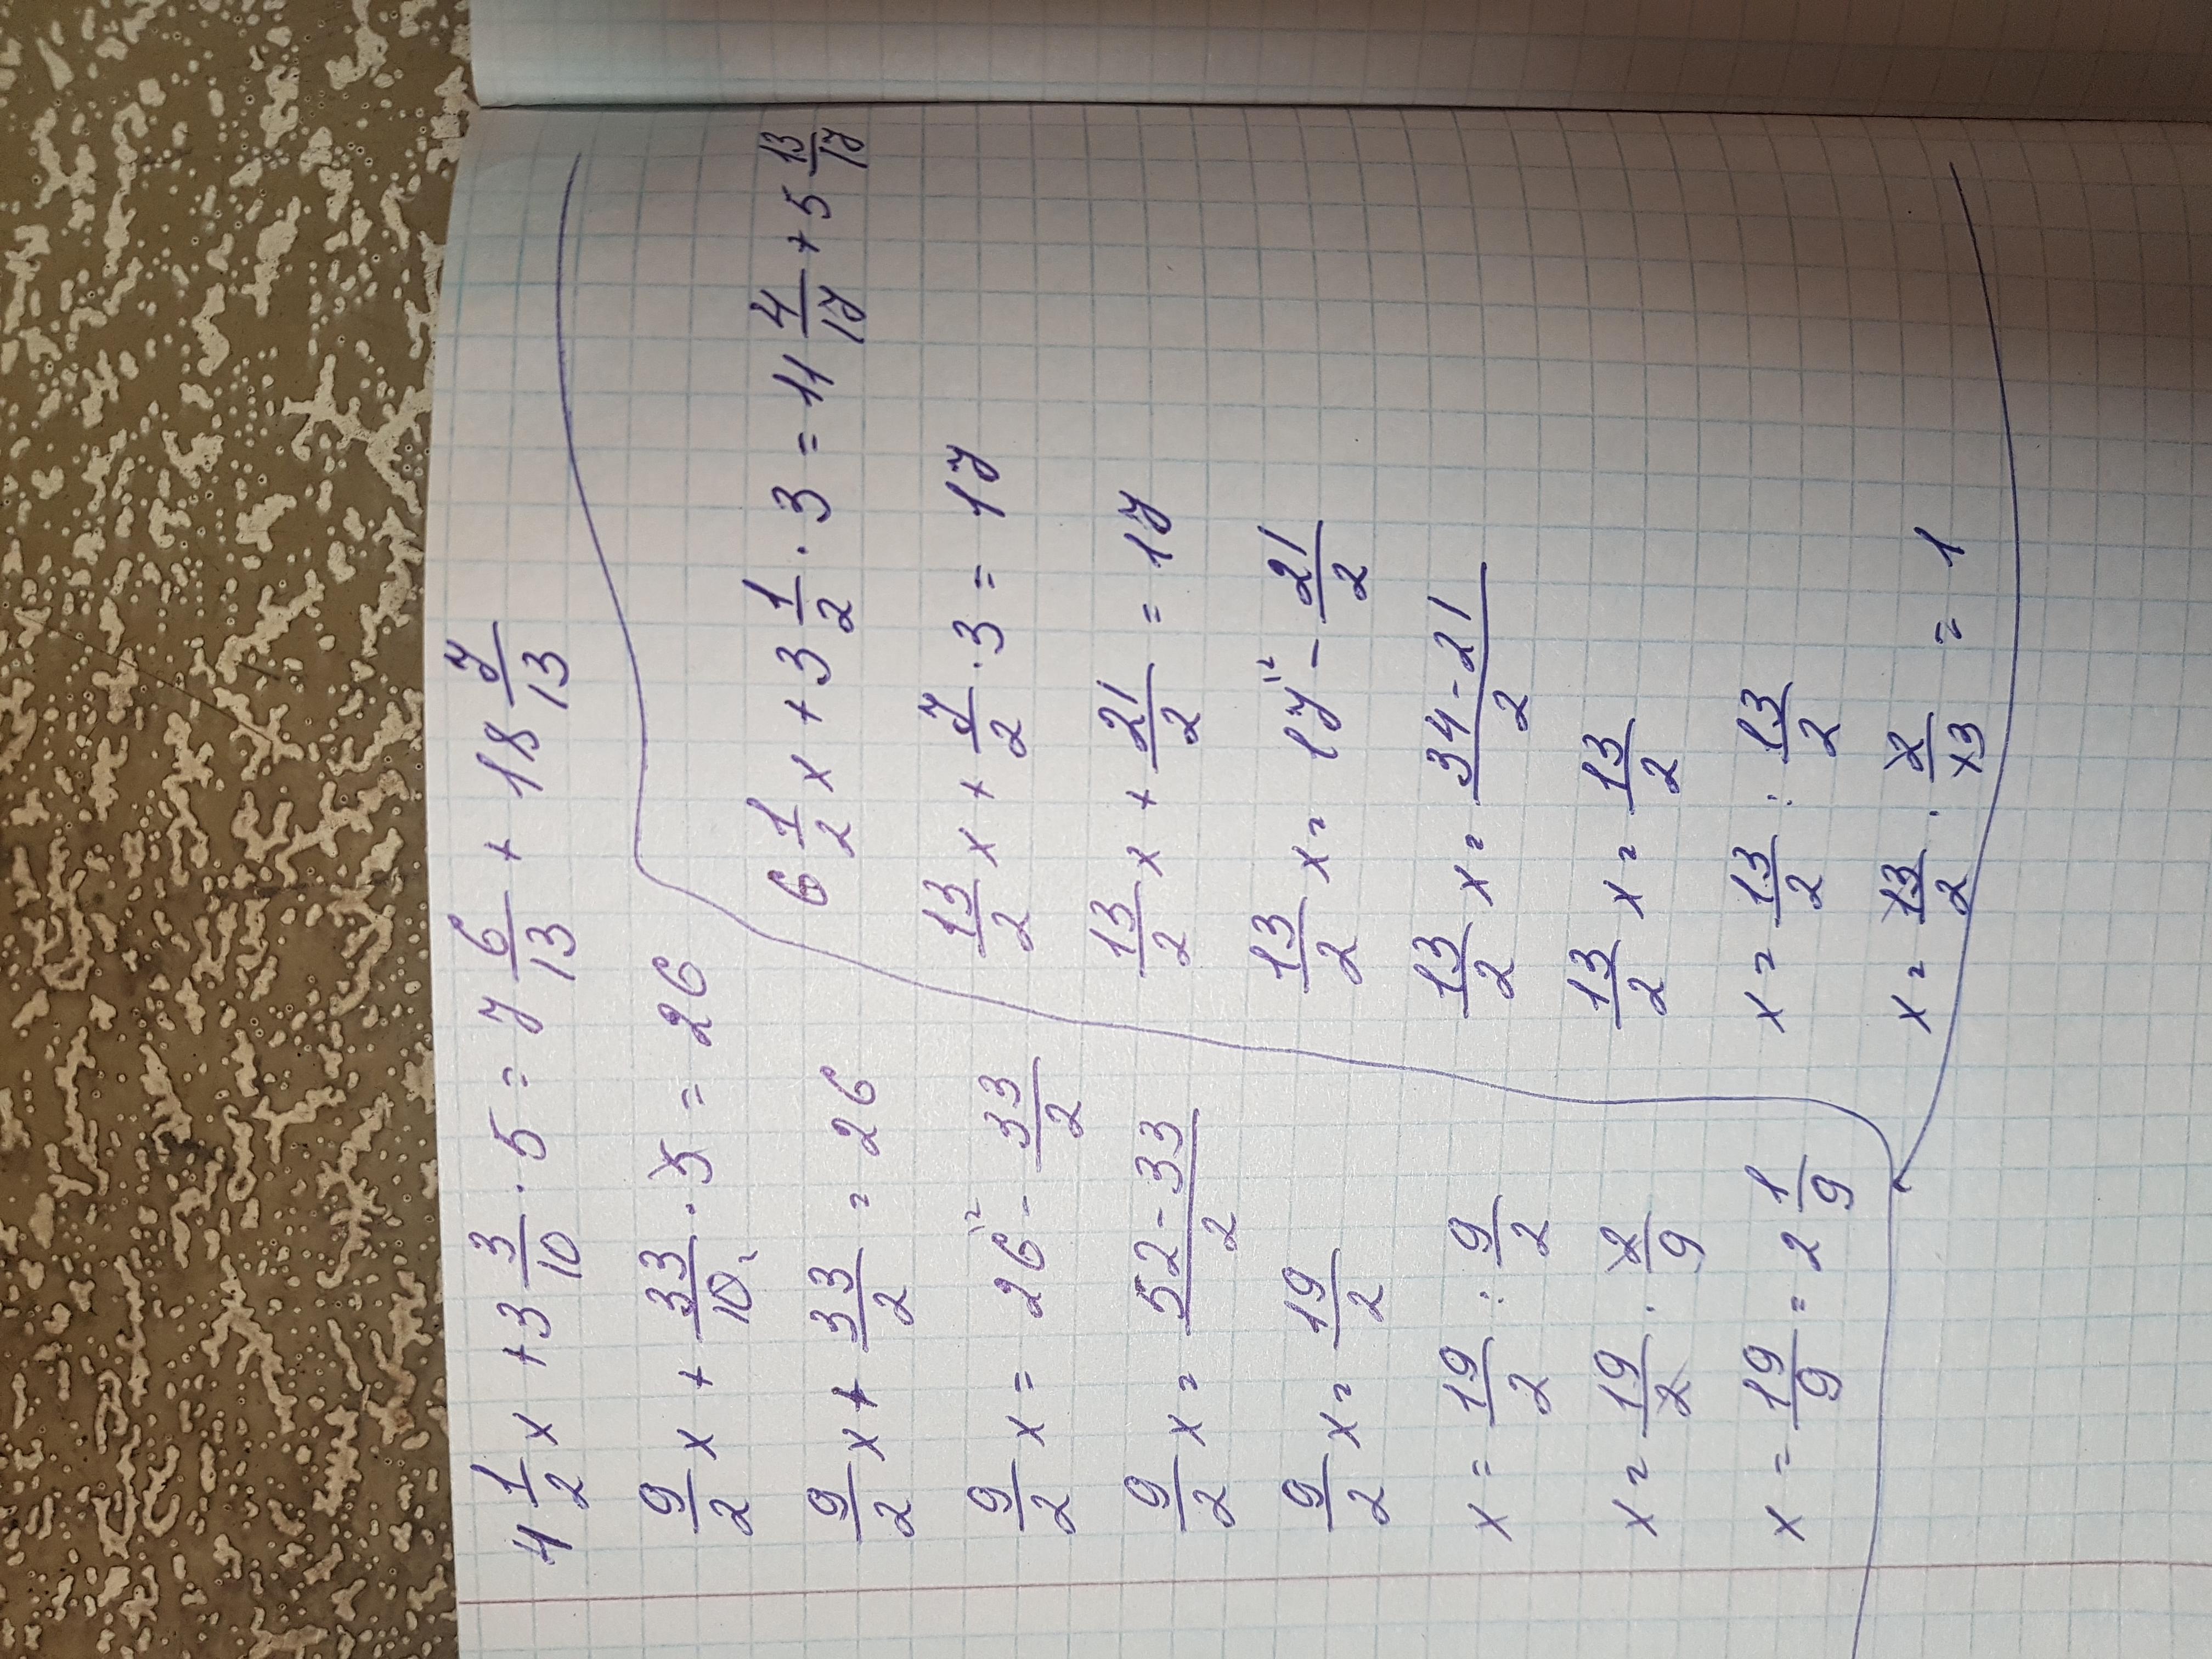 4 1/2 x + 3 3/10 · 5 = 7 6/13 + 18 7/13
9/2 x + 33/10 · 5 = 26
9/2 x + 33/2 = 26
9/2 x = 26^2 - 33/2
9/2 x = 52-33/2
9/2 x = 19/2
x = 19/2 : 9/2
x = 19/2 · 2/9
x = 19/9 = 2 1/9
6 1/2 x + 3 1/2 · 3 = 11 4/17 + 5 13/17
13/2 x + 7/2 · 3 = 17
13/2 x + 21/2 = 17
13/2 x = 17^2 - 21/2
13/2 x = 34-21/2
13/2 x = 13/2
x = 13/2 : 13/2
x = 13/2 · 2/13 = 1